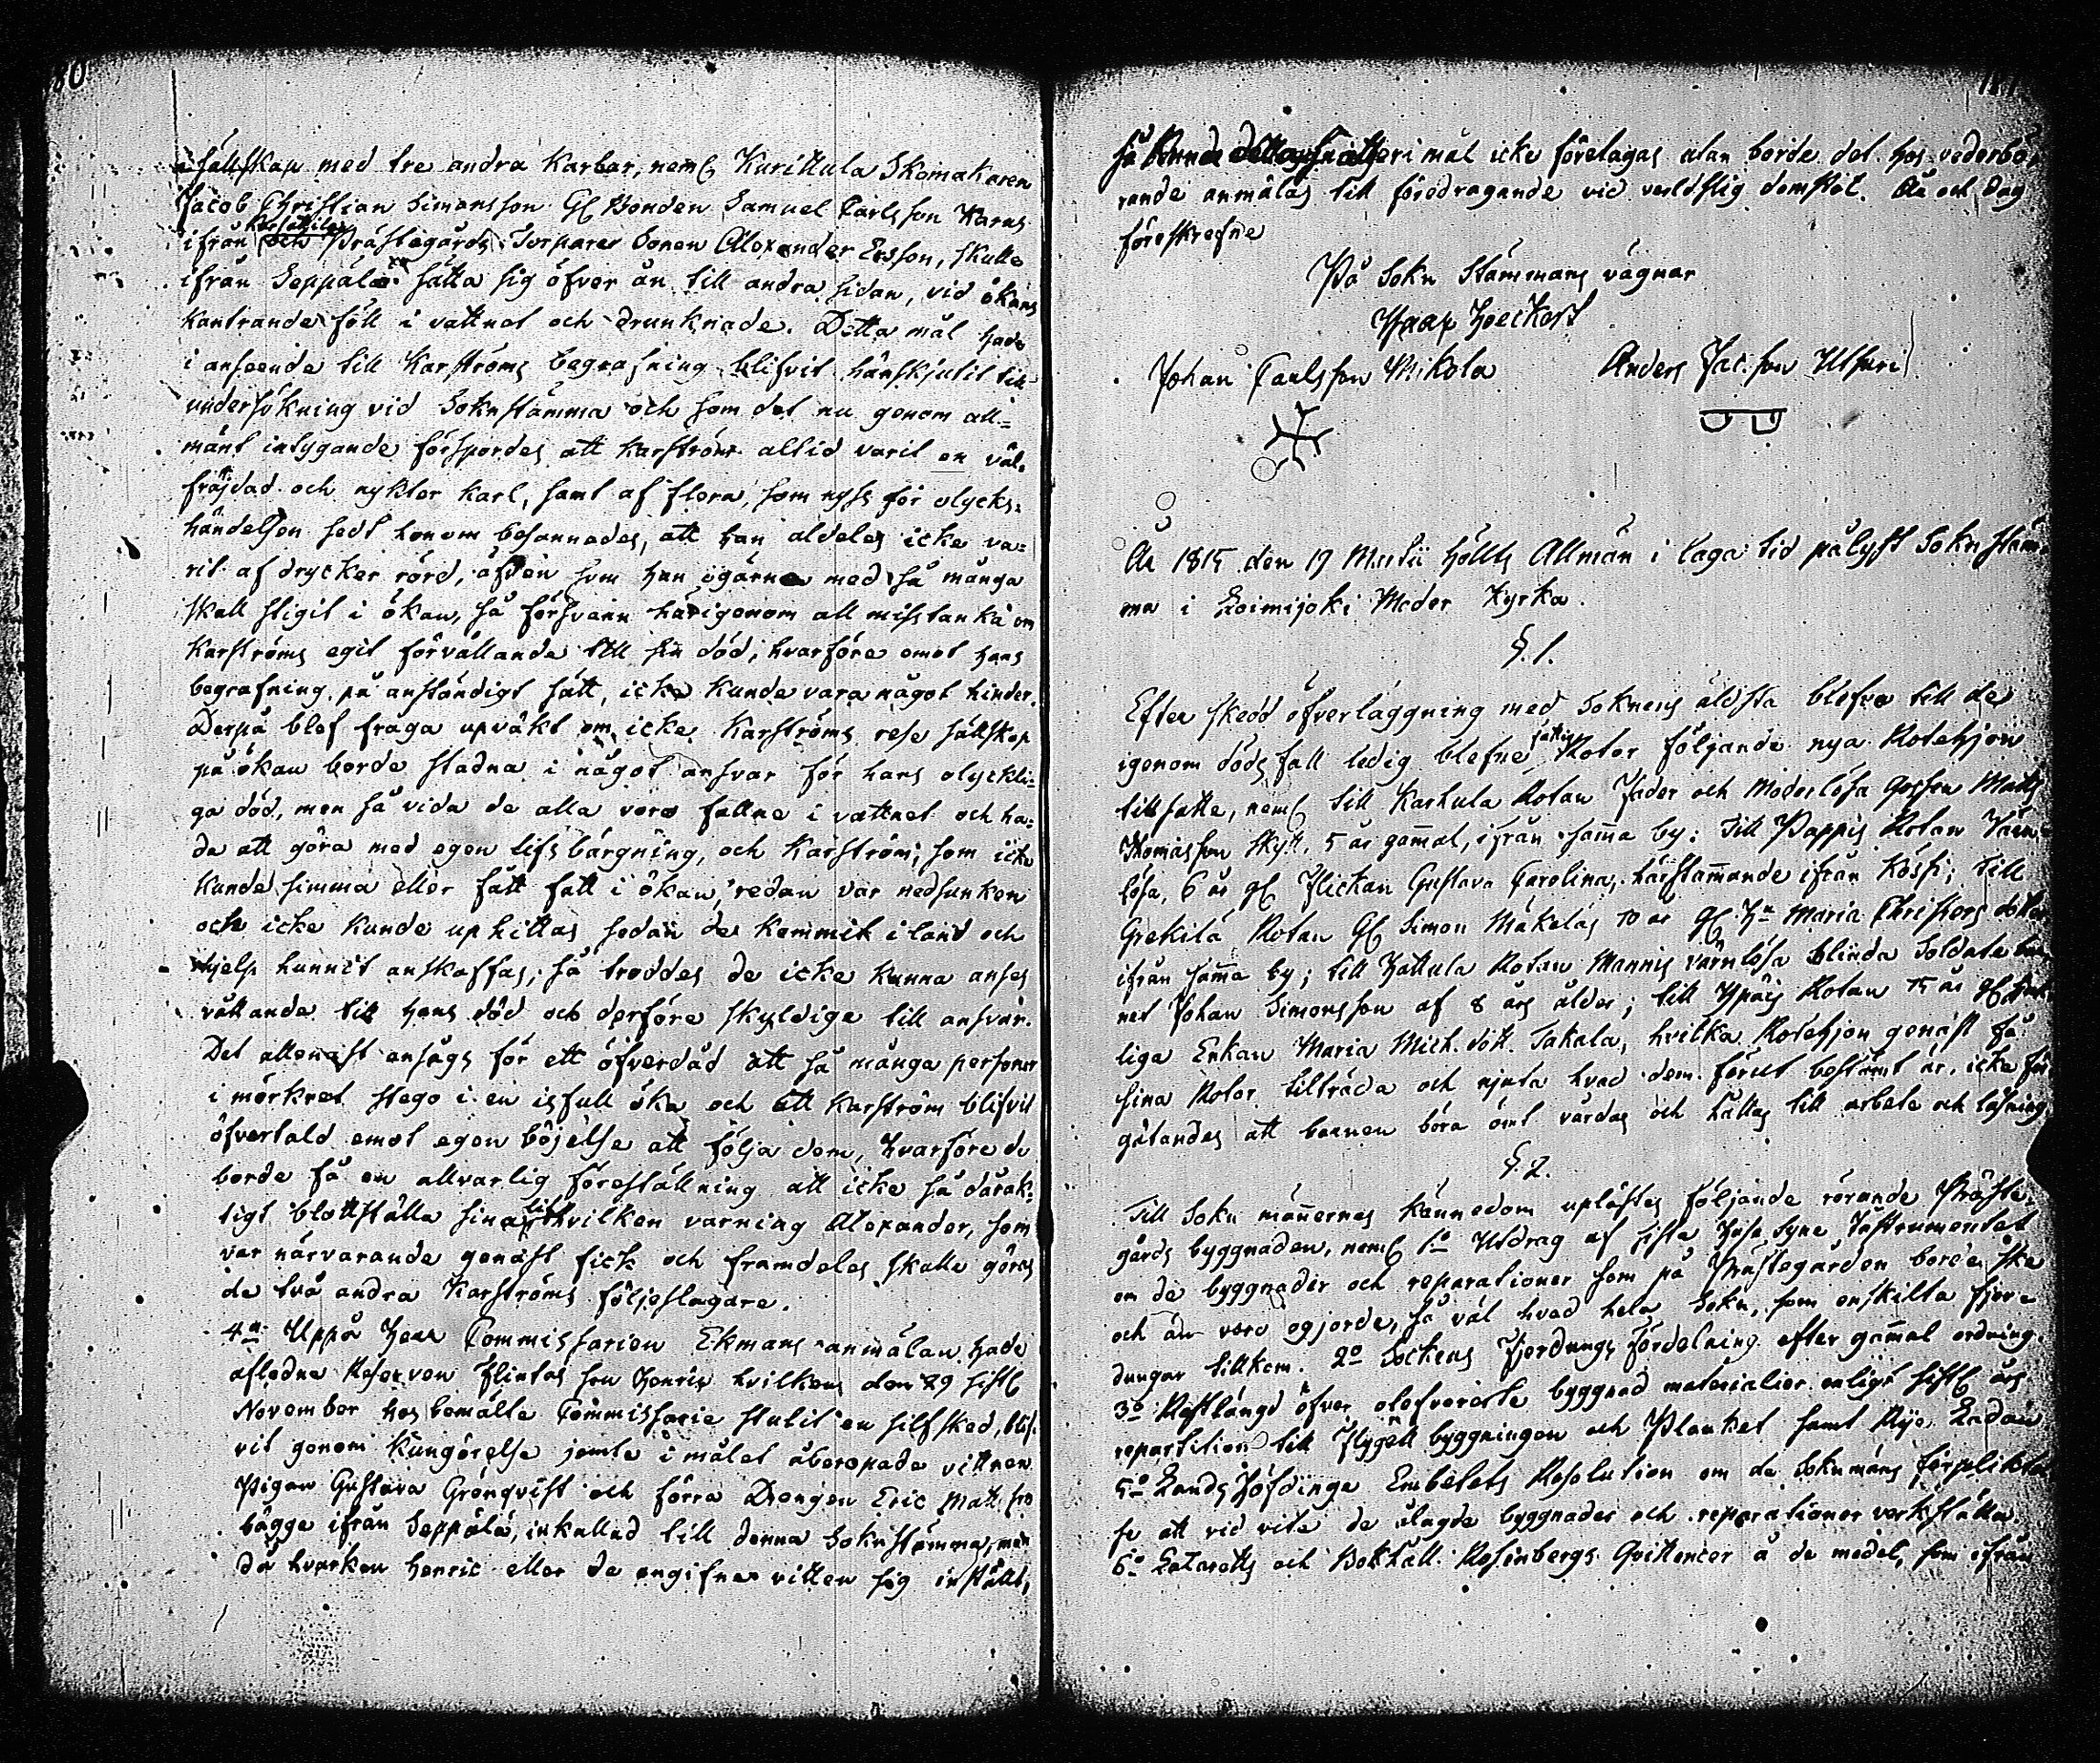 80
i sällskap med tre andra Karlar, neml Kurittula Skomakaren
Jacob Christian Simonsson Gl Bonden Samuel Carlsson Karas
ifrån Karsattila och Prästegårds Torpare Sonen Alexander Ersson, skulle
ifrån Seppälä sätta sig öfver ån till andra sidan, vid ökans
kantrande föll i vattnet och drunknade. Detta mål hade
i anseende till Karströms begrafning blifvit hänskjutit till
undersökning vid Soknstämma och som det nu genom all=
mänt intygande förspordes att Karström altid varit en väl-
fräjdad och nykter karl, samt af flera, som nyss för olycks-
händelsen sedt honom besannades, att han aldeles icke va=
rit af drycker rörd, äfven som han ogärna med så många
skall stigit i ökan, så försvann härigenom all misstanka om
Karströms egit förvållande till sin död; hvarföre emot hans
begrafning på anständigt sätt, icke kunde vara något hinder.
Derpå blef fråga upväkt om icke Karströms rese sällskap
på ökan borde stadna i något ansvar för hans olyckli=
ga död, men så vida de alla voro fallne i vattnet och ha=
de att göra med egen lifsbärgning, och Karström, som icke
kunde simma eller fått fatt i ökan, redan var nedsunken
och icke kunde uphittas sedan de kommit i land och
hjelp hunnit anskaffas; så troddes de icke kunna anses
vållande till hans död och derföre skyldige till ansvar.
Det allenast ansågs för ett öfverdåd att så många personer
i mörkret stego i en isfull öka och att Karström blifvit
öfvertald emot egen böjelse att följa dem, hvarföre de
borde få en allvarlig föreställning att icke så dårak=
tigt blottställa sina lif hvilken varning Alexander, som
var närvarande genast fick och framdeles skulle göras
de två andra Karströms följeslagare.
4º Uppå Herr Commissarien Ekmans anmälan hade
afledne Reserven Flintas son Henrik hvilken den 29 sistl
November hos bemälte Commissarie stulit en silfsked, blif-
vit genom Kungörelse jemte i målet åberopade vittnen
Pigan Gustava Grönqvist och förra Drengen Eric Mattsson
bägge ifrån Seppälä, inkallad till denna Soknstämma, men
då hvarken Henric eller de angifne vitten sig inställt,
181
så kunde detta snatteri mål icke företagas utan borde det hos vederbö-
rande anmälas till föredragande vid verldslig domstol. År och dag
föreskrefne
På Sokn Stämmans vägnar
Isaac Hoeckert
Johan Carlsson Mikola Anders Jac:son Uspari
År 1815 den 19 Martii höllts Allmän i laga tid pålyst Soknstäm-
ma i Loimijoki Moder Kyrka.
§. 1.
Efter skedd öfverläggning med Soknens äldsta blefvo till de
igenom dödsfall ledig blefne fattig Rotor följande nya Rotehjon
tillsatte, neml till Karhula Rotan Fader och Moderlösa Gossen Matts
Thomasson Skytt, 5 år gam̄al, ifrån sam̄a by: Till Pappis Rotan Värn-
lösa, 6 år gl Flickan Gustava Carolina, härstam̄ande ifrån Kössi; till
Grekilä Rotan Gl Simon Mäkeläs 70 år gl Hu Maria Christers dotter
ifrån sam̄a by; till Hattula Rotan Mannis värnlösa blinda Soldate bar-
net Johan Simonsson af 8 års ålder; till Ypäis Rotan 75 år gl
liga Enkan Maria Mich. dott. Takala, hvilka Rotehjon genast få
sina Rotor tillträda och njuta hvad dem förut bestämt är, icke för-
gätandes att barnen böra ömt vårdas och hållas till arbete och läsning.
§. 2.
Till Sokn män̄ernes kännedom uplästes följande rörande Präste-
gårds byggnaden, neml 1º Utdrag af sista Huse Syne Instrumentet
om de byggnader och reparationer som på Prästegården borde ske
och än voro ogjorde, så väl hvad hela Sokn, som enskilta fjer-
dungar tillkom. 2º Sockens Fjerdungs fördelning efter gam̄al ordning.
3º Restlängd öfver olefvererte byggnad materialier enligt sistl års
repartition till Flygell byggningen och Planket samt Rije Ladan
5º Lands Höfdinge Embetets Resolution om de Soknmäns förpliktel-
se att vid vite de ålagde byggnader och reparationer verkställa.
6º Lazaretts och Bokhåll. Rosenbergs Qvittencer å de medel, som ifrån